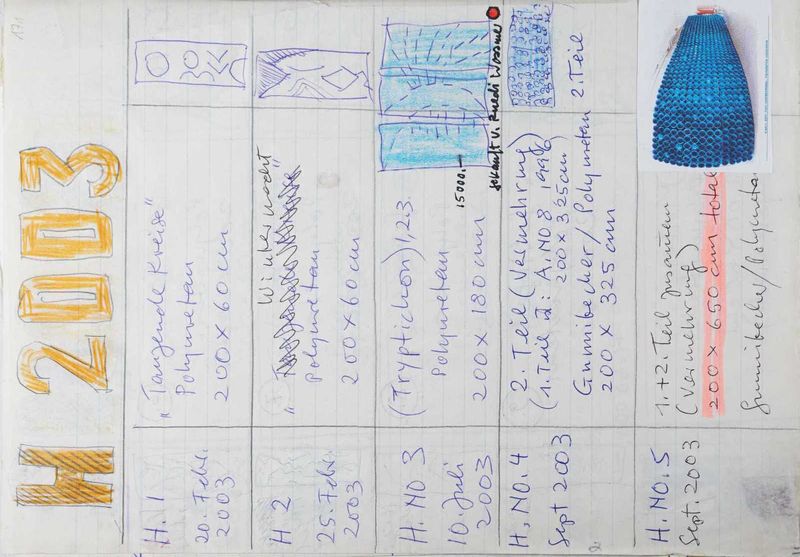 171
H 2003
H. 1
20. Febr.
2003
„Tanzende Kreise"
Polyuretan
200 x 60 cm
H 2
25. Febr.
2003
„Winternacht"
Polyuretan
200 x 60 cm
H. NO 3
10. Juli
2003
(Tryptichon) 1,2,3.
Polyuretan
200 x 180 cm
15000.—
gekauft v. Ruedi
H, NO. 4
Sept 2003
2. Teil (Vermehrung)
(1. Teil
A. NO 8 1996
200 x 325 cm
Gummibecher / Polyuretan
200 x 325 cm
2. Teil
H. NO. 5
Sept. 2003
1.+2. Teil zusamen
(Vermehrung)
200 x 650 cm total
Gummibecher/Polyuretan